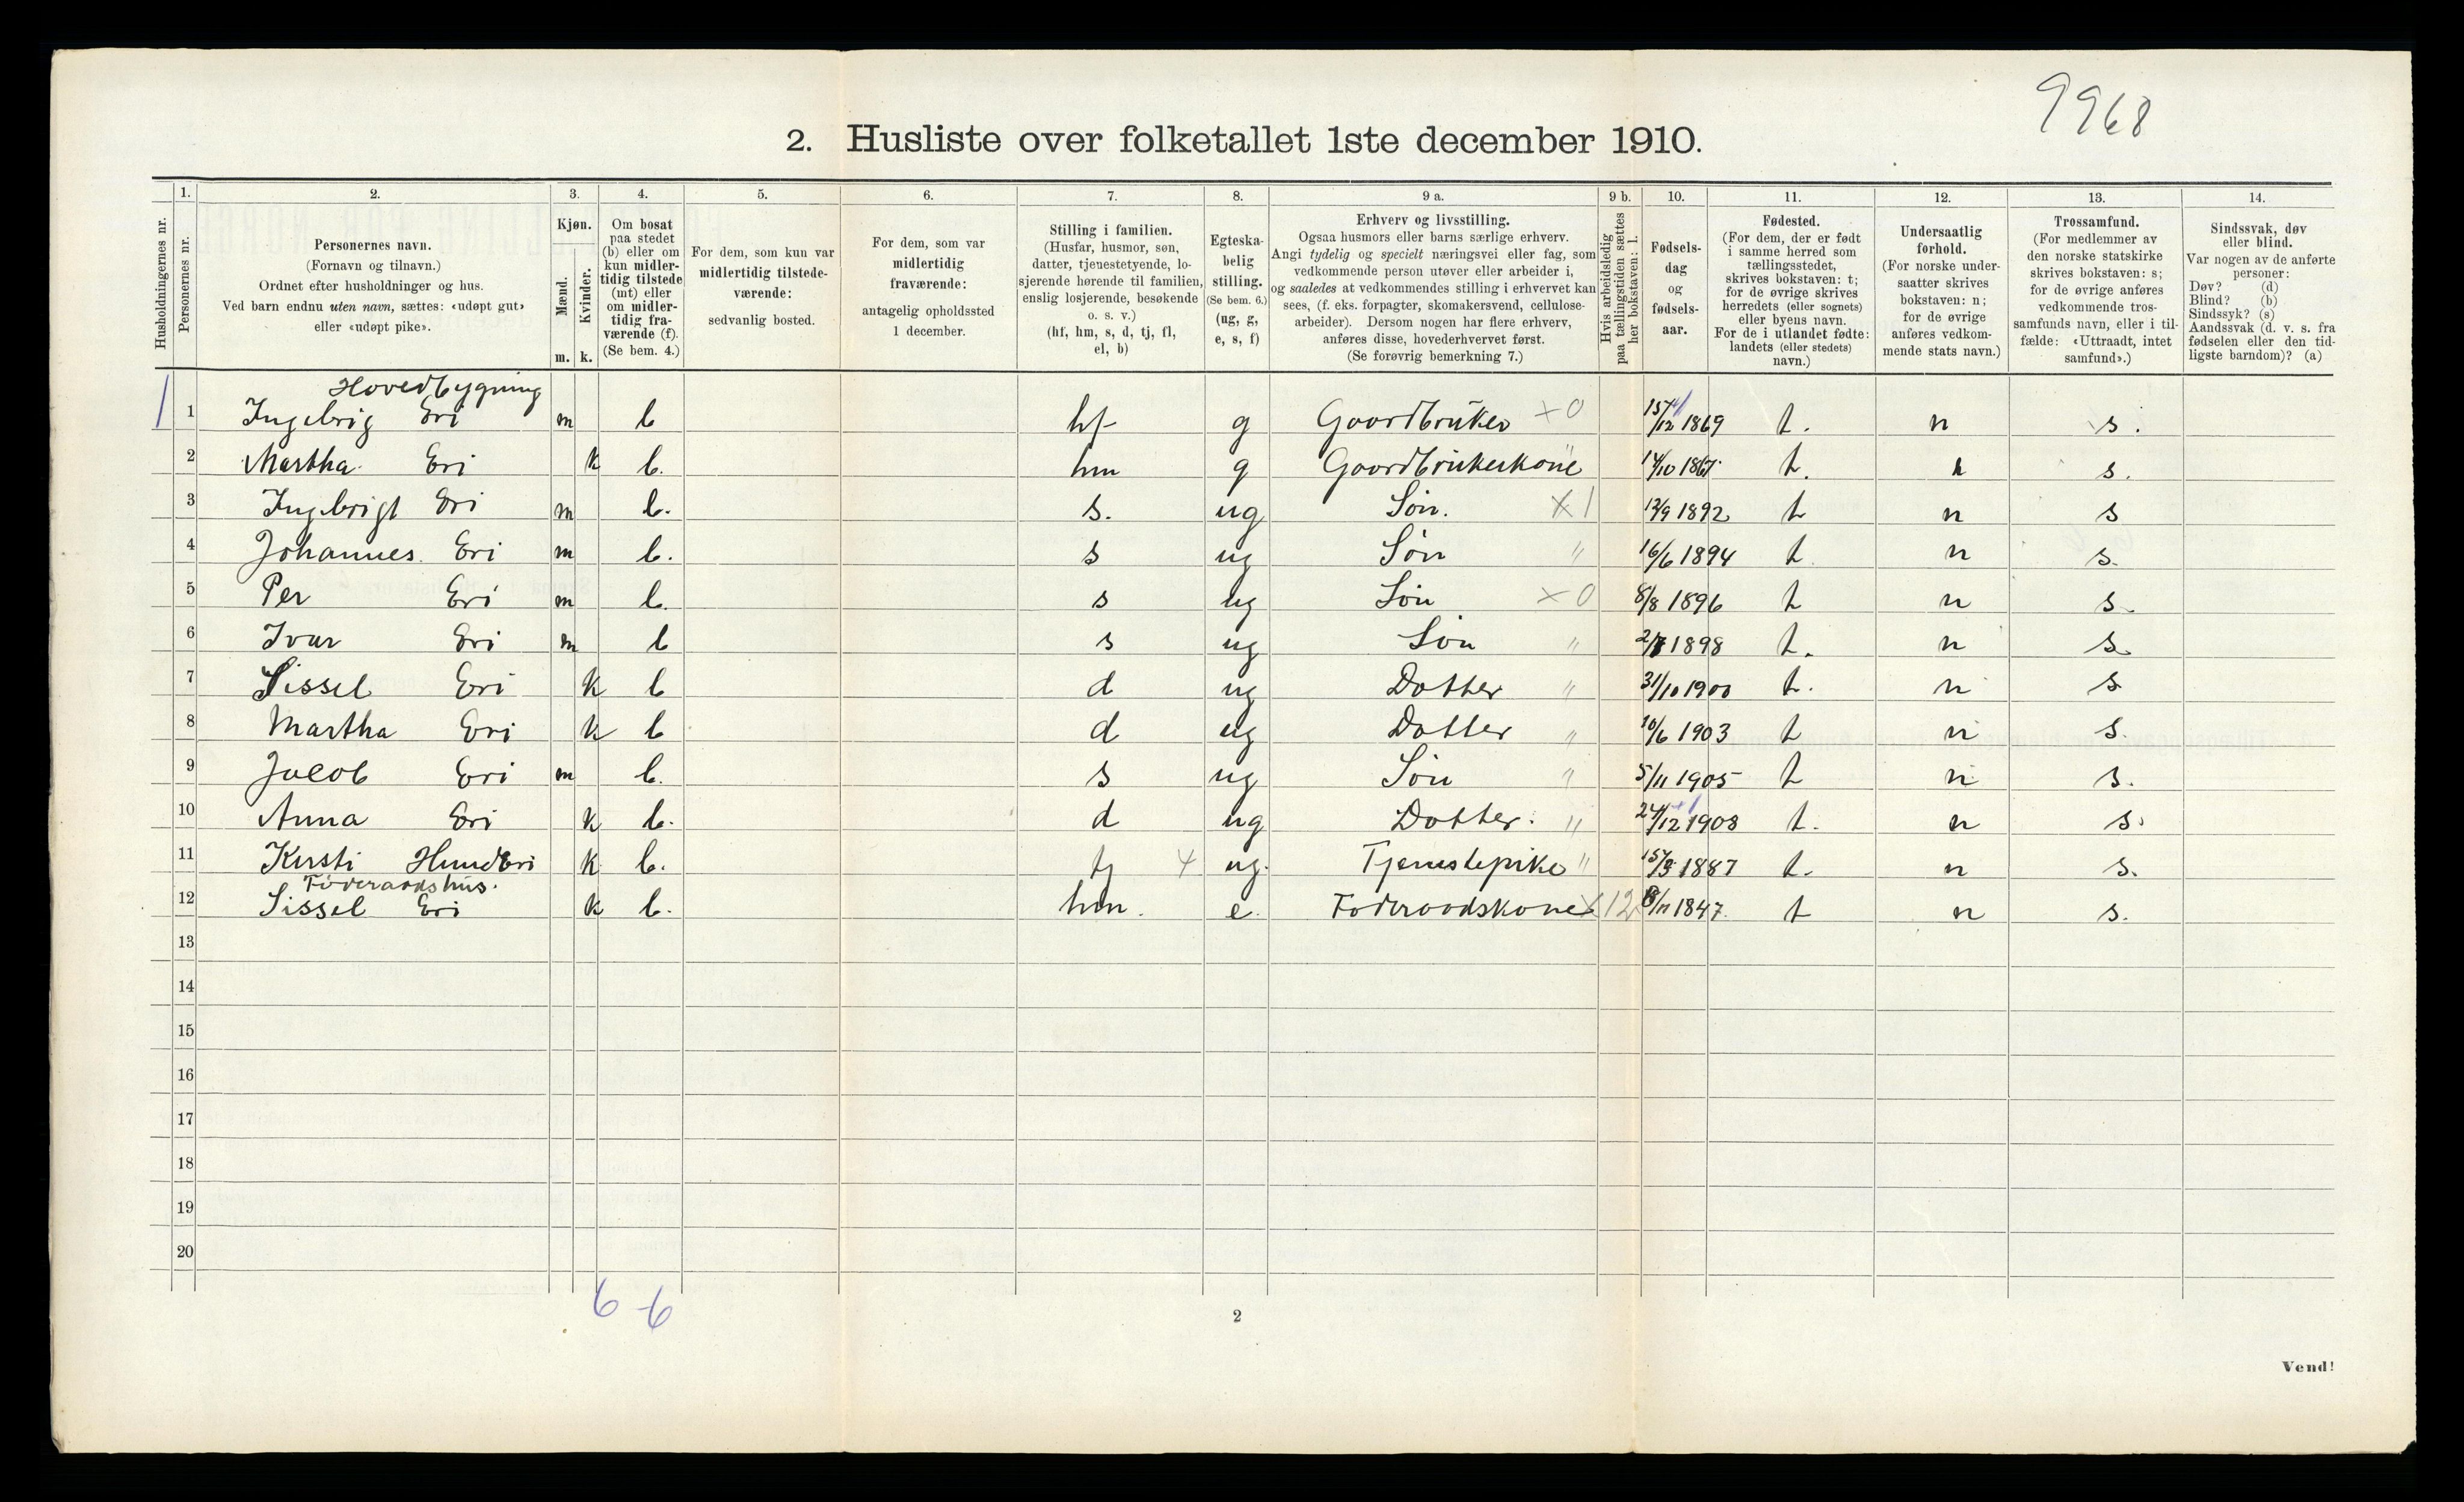 9968
2. Husliste over folketallet 1ste december 1910.
Husholdningernes nr.
1. Personernes nr.
2.
Personernes navn.
(Fornavn og tilnavn.)
Ordnet efter husholdninger og hus.
Ved barn endnu uten navn, sættes: «udøpt gut»
eller «udøpt pike».
3.
Kjøn.
Mænd. Kvinder.
m. k.
4.
Om bosat
paa stedet
(b) eller om
kun midler-
tidig tilstede
(mt) eller
om midler-
tidig fra-
værende (f).
(Se bem. 4.)
5.
For dem, som kun var
midlertidig tilstede-
værende:
sedvanlig bosted.
6.
For dem, som var
midlertidig
fraværende:
antagelig opholdssted
1 december.
7.
Stilling i familien.
(Husfar, husmor, søn,
datter, tjenestetyende, lo-
sjerende hørende til familien,
enslig losjerende, besøkende
o. s. v.)
(hf, hm, s, d, tj, fl,
el, b)
8.
Egteska-
belig
stilling.
(Se bem. 6.)
(ug, g,
e, s, f)
9 a.
Erhverv og livsstilling.
Ogsaa husmors eller barns særlige erhverv.
Angi tydelig og specielt næringsvei eller fag, som
vedkommende person utøver eller arbeider i,
og saaledes at vedkommendes stilling i erhvervet kan
sees, (f. eks. forpagter, skomakersvend, cellulose-
arbeider). Dersom nogen har flere erhverv,
anføres disse, hovederhvervet først.
(Se forøvrig bemerkning 7.)
9 b.
Hvis arbeidsledig
paa tællingstiden sættes
her bokstaven: l.
10.
Fødsels-
dag
og
fødsels-
aar.
11.
Fødested.
(For dem, der er født
i samme herred som
tællingsstedet,
skrives bokstaven: t;
for de øvrige skrives
herredets (eller sognets)
eller byens navn.
For de i utlandet fødte:
landets (eller stedets)
navn.)
12.
Undersaatlig
forhold.
(For norske under-
saatter skrives
bokstaven: n;
for de øvrige
anføres vedkom-
mende stats navn.)
13.
Trossamfund.
(For medlemmer av
den norske statskirke
skrives bokstaven: s;
for de øvrige anføres
vedkommende tros-
samfunds navn, eller i til-
fælde: «Uttraadt, intet
samfund».)
14.
Sindssvak, døv
eller blind.
Var nogen av de anførte
personer:
Døv? (d)
Blind? (b)
Sindssyk? (s)
Aandssvak (d. v. s. fra
fødselen eller den tid-
ligste barndom)? (a)
Hovedbygning
1 1 Ingebrig Eri m b hf g Gaardbruker x 0 15/12 1869 t. n s.
2 Martha Eri k b. hm g Gaardbrukerkone " 14/10 1867 t. n s.
3 Ingebrigt Eri m b. s. ug Søn. x 1 12/9 1892 t n s
4 Johannes. Eri m b. s ug Søn " 16/6 1894 t n s.
5 Per Eri m b. s ug Søn x 0 8/8 1896 t n s.
6 Ivar Eri m b s ug Søn " 1898 t. n s.
7 Sissel Eri k b d ug Dotter " 31/10 1900 t. n s
8 Martha Eri k b d ug Dotter " 10/6 1903 t n s.
9 Jacob Eri m b. s ug Søn " 5/11 1905 t n s.
10 Anna Eri k b. d ug Dotter. " 24/12 1908 t. n s.
11 Kirsti HundEri k b. tj 4 ug. Tjenestepike " 1887 t. n s.
Føderaadshus.
12 Sissel Eri k b. hm. e. Føderaadskone x 12 1847. t n s.
13
14
15
16
17
18
19
20
6 - 6
2
Vend!